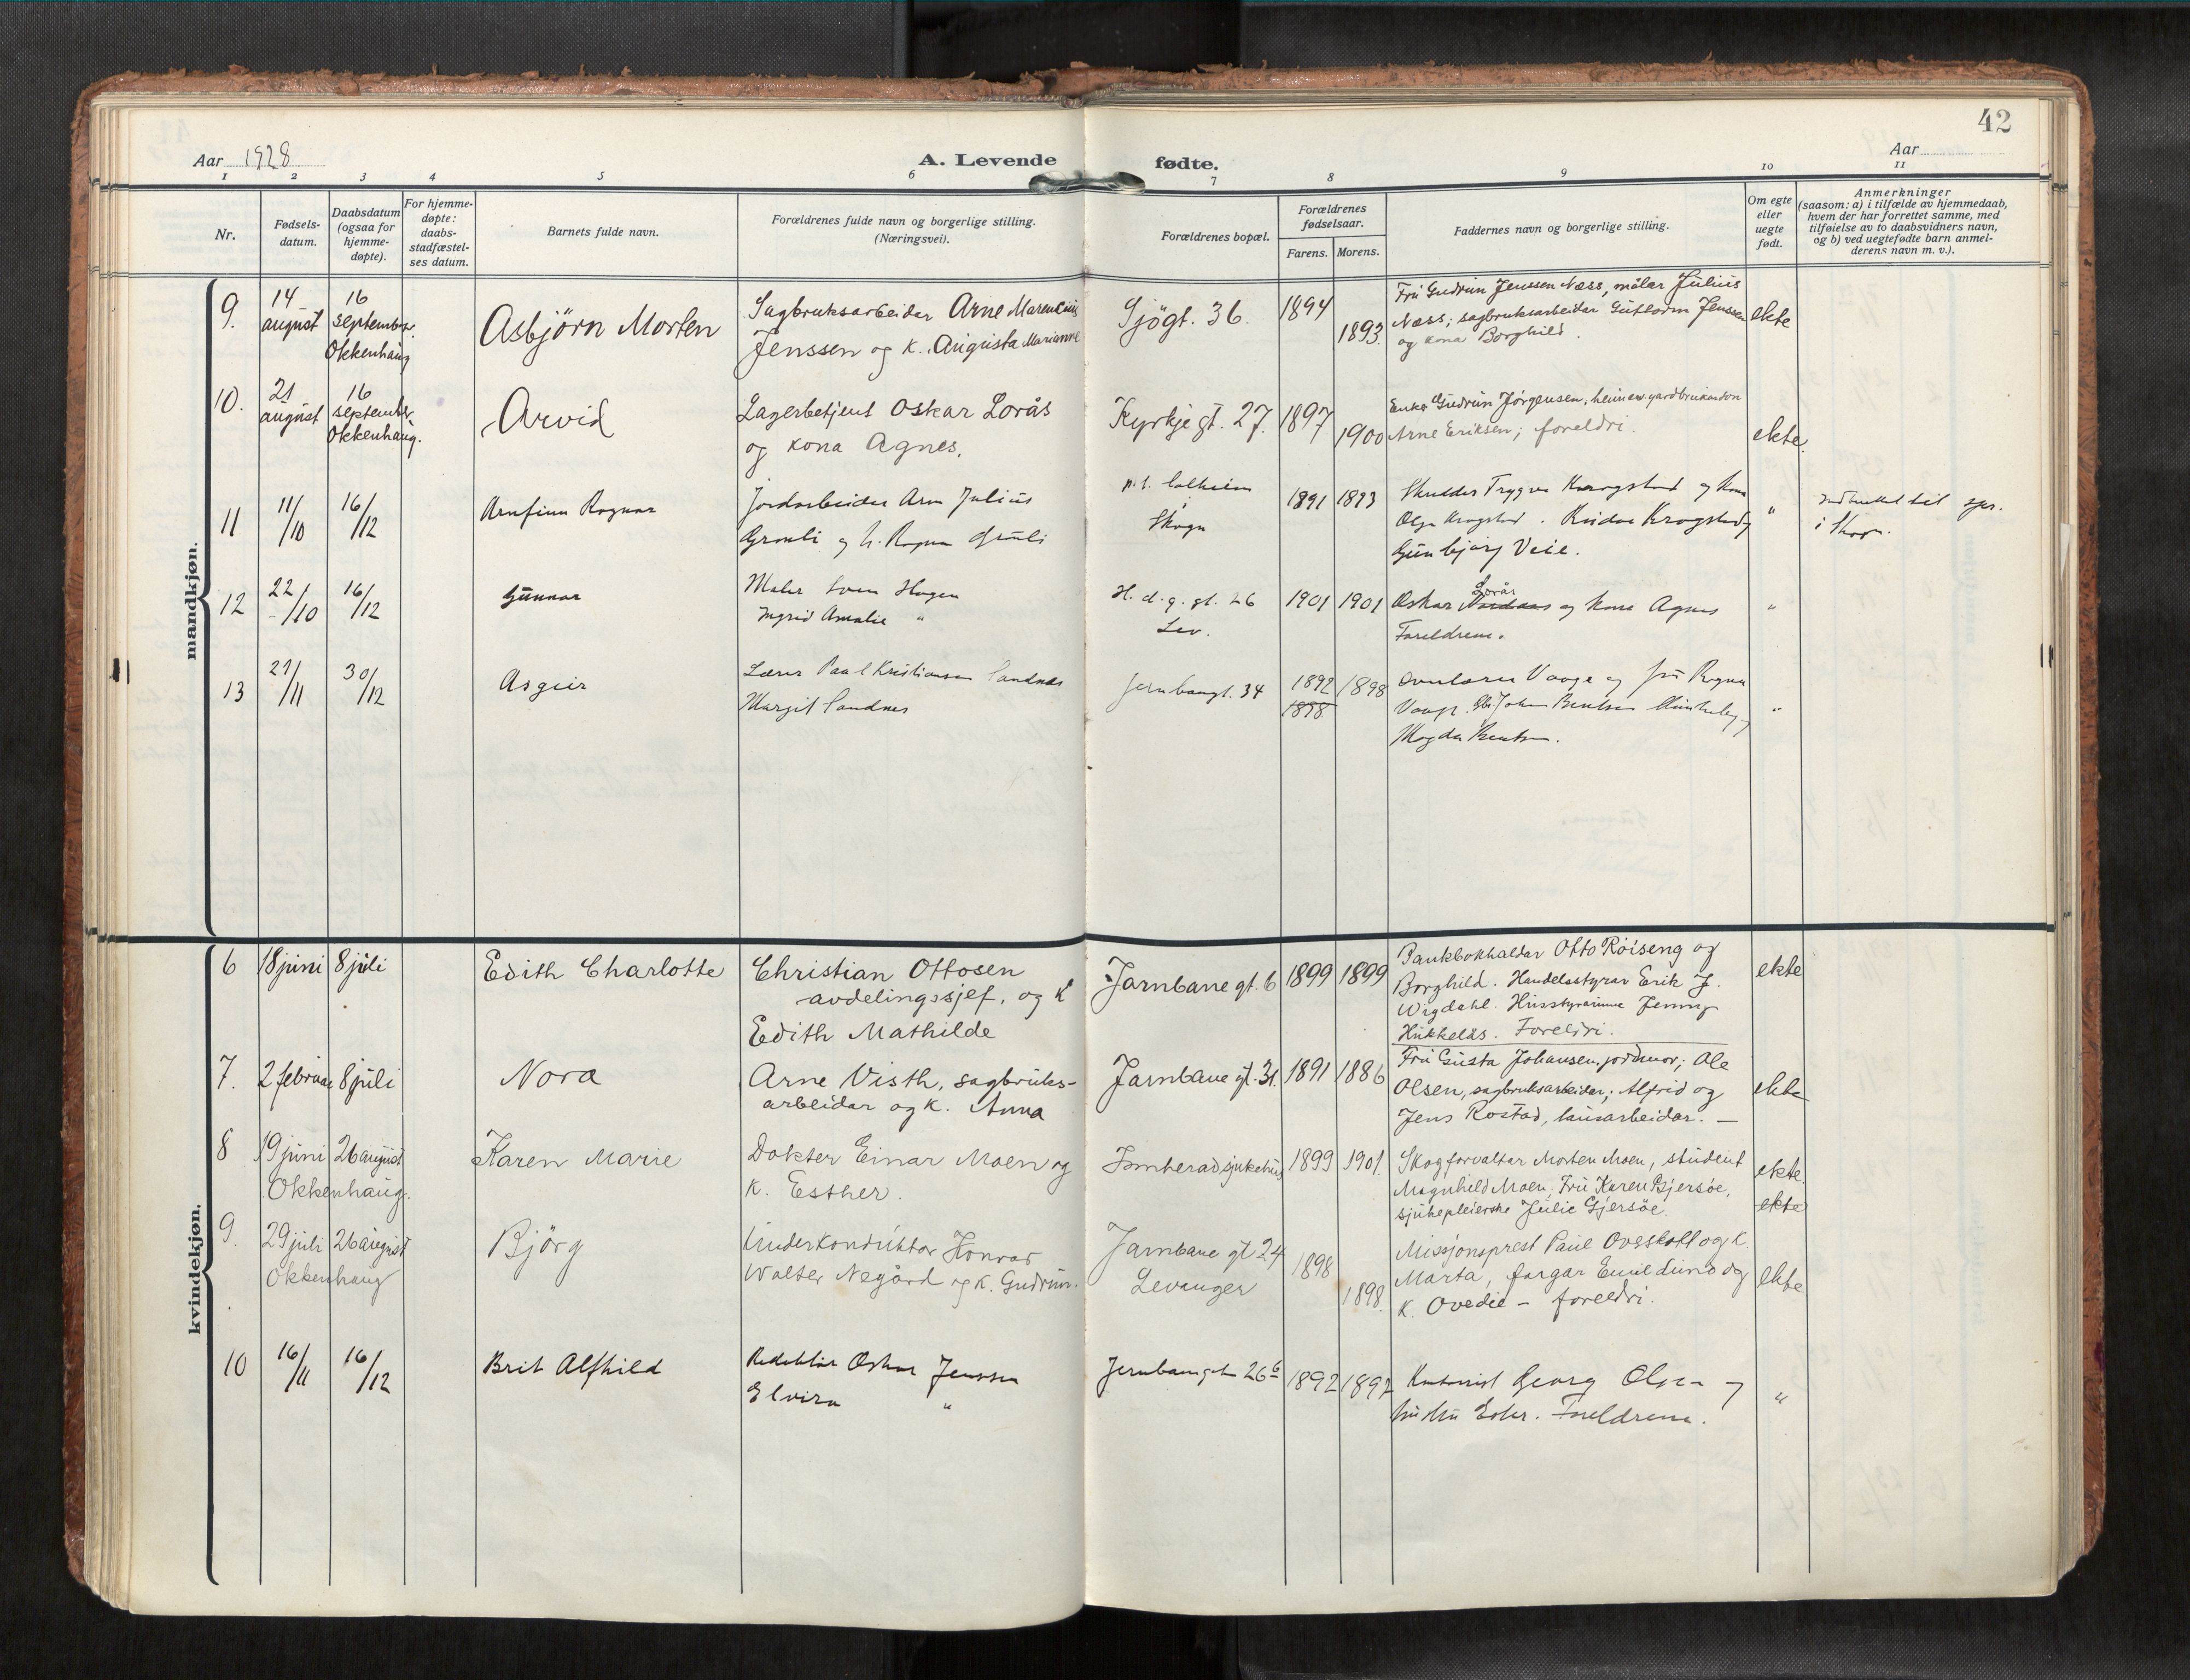 42
Aar 1928
A. Levende fødte.
Aar
1 2 3 4 5 6 7 8 9 10 11
Nr.
Fødsels-
datum.
Daabsdatum
(ogsaa for
hjemme-
døpte).
For hjemme-
døpte:
daabs-
stadfæstel-
ses datum.
Barnets fulde navn.
Forældrenes fulde navn og borgerlige stilling.
(Næringsvei).
Forældrenes bopæl.
Forældrenes
fødselsaar.
Farens. Morens.
Faddernes navn og borgerlige stilling.
Om egte
eller
uegte
født.
Anmerkninger
(saasom: a) i tilfælde av hjemmedaab,
hvem der har forrettet samme, med
tilføielse av to daabsvidners navn,
og b) ved uegtefødte barn anmel-
derens navn m. v.).
mandkjøn.
9.
14
august
16
september.
Okkenhaug
Asbjörn Morten
Sagbruksarbeidar Arne Marenius
Jenssen og k. Augusta Marianne
Sjögt. 36.
1894
1893.
Fru Gudrun Jenssen Næss, målar Julius
Næss; sagbruksarbeidar Guttorm Jenssen
og kona Borghild.
ekte
10.
21
august
16
september
Okkenhaug.
Arvid
Lagerbetjent Oskar Lorås
og kona Agnes.
Kyrkjegt. 27.
1897
1900
Enke Gudrun Jörgensen, gardbrukar
Arne Eriksen; foreldri.
ekte.
11
11/10
16/12
Arnfinn Ragnar
Jordarbeider Arne Julius
Grønli og h. Ragna Grønli
Skogn
1891 1893
Trygve Kragstad og kona
Olga Kragstad. Kragstad og
Gunbjørg Veie.
"
til spr.
i Skogn.
12
22/10
16/12
Gunnar
Maler Sven Hagen
Ingrid Amalie "
H. d. g. gt. 26
Lev.
1901 1901
Lorås
Oskar og kona Agnes
Foreldrene.
"
13
27/11
30/12
Asgeir
Lærer Paul Kristiansen Sandnes
Margit Sandnes
Jernbanegt. 34
1892 1898
1898
Vaage og fru Ragna
Vaage. Johan Bentsen
Magda Bentsen.
"
kvindekjøn.
6
18 juni
8 juli
Edith Charlotte
Christian Ottosen
avdelingssjef, og k
Edith Mathilde
Jarnbane gt. 6
1899 1899
Bankbokhaldar Otto Röiseng og
Borghild. Handelsstyrar Erik J.
Wigdahl. Husstyrarinne Jenny
Hukkelås. Foreldri.
ekte
7.
2 februar
8 juli
Nora
Arne Visth, sagbruks-
arbeidar og k. Anna
Jarnbane gt. 31.
1891 1886
Fru Gusta Johansen, jordmor; Ole
Olsen, sagbruksarbeidar; Alfrid og
Jens Rostad, lausarbeidar. —
ekte
8
19 juni
26 august
Okkenhaug.
Karen Marie
Dokter Einar Moen og
k. Esther.
Innherad sjukehus
1899 1901.
Skogforvaltar Morten Moen, student
Magnhild Moen, Fru Karen Gjersöe,
sjukepleierske Julie Gjersöe.
ekte.
ekte
9.
29 juli
26 august
Okkenhaug
Björg
Underkonduktör Konrad
Walter Negård og k. Gudrun.
Jarnbane gt 24
Levanger
1898
1898.
Misjonsprest Paul Ovesholt og k.
Marta, fargar Emil Lund og
k. Ovedie — foreldri.
ekte
10
16/11
16/12
Brit Alfhild
Redaktør Oskar Jenssen
Elvira "
Jernbanegt 26 b
1892 1892
Georg Olsen og
fru Ester. Foreldrene.
"